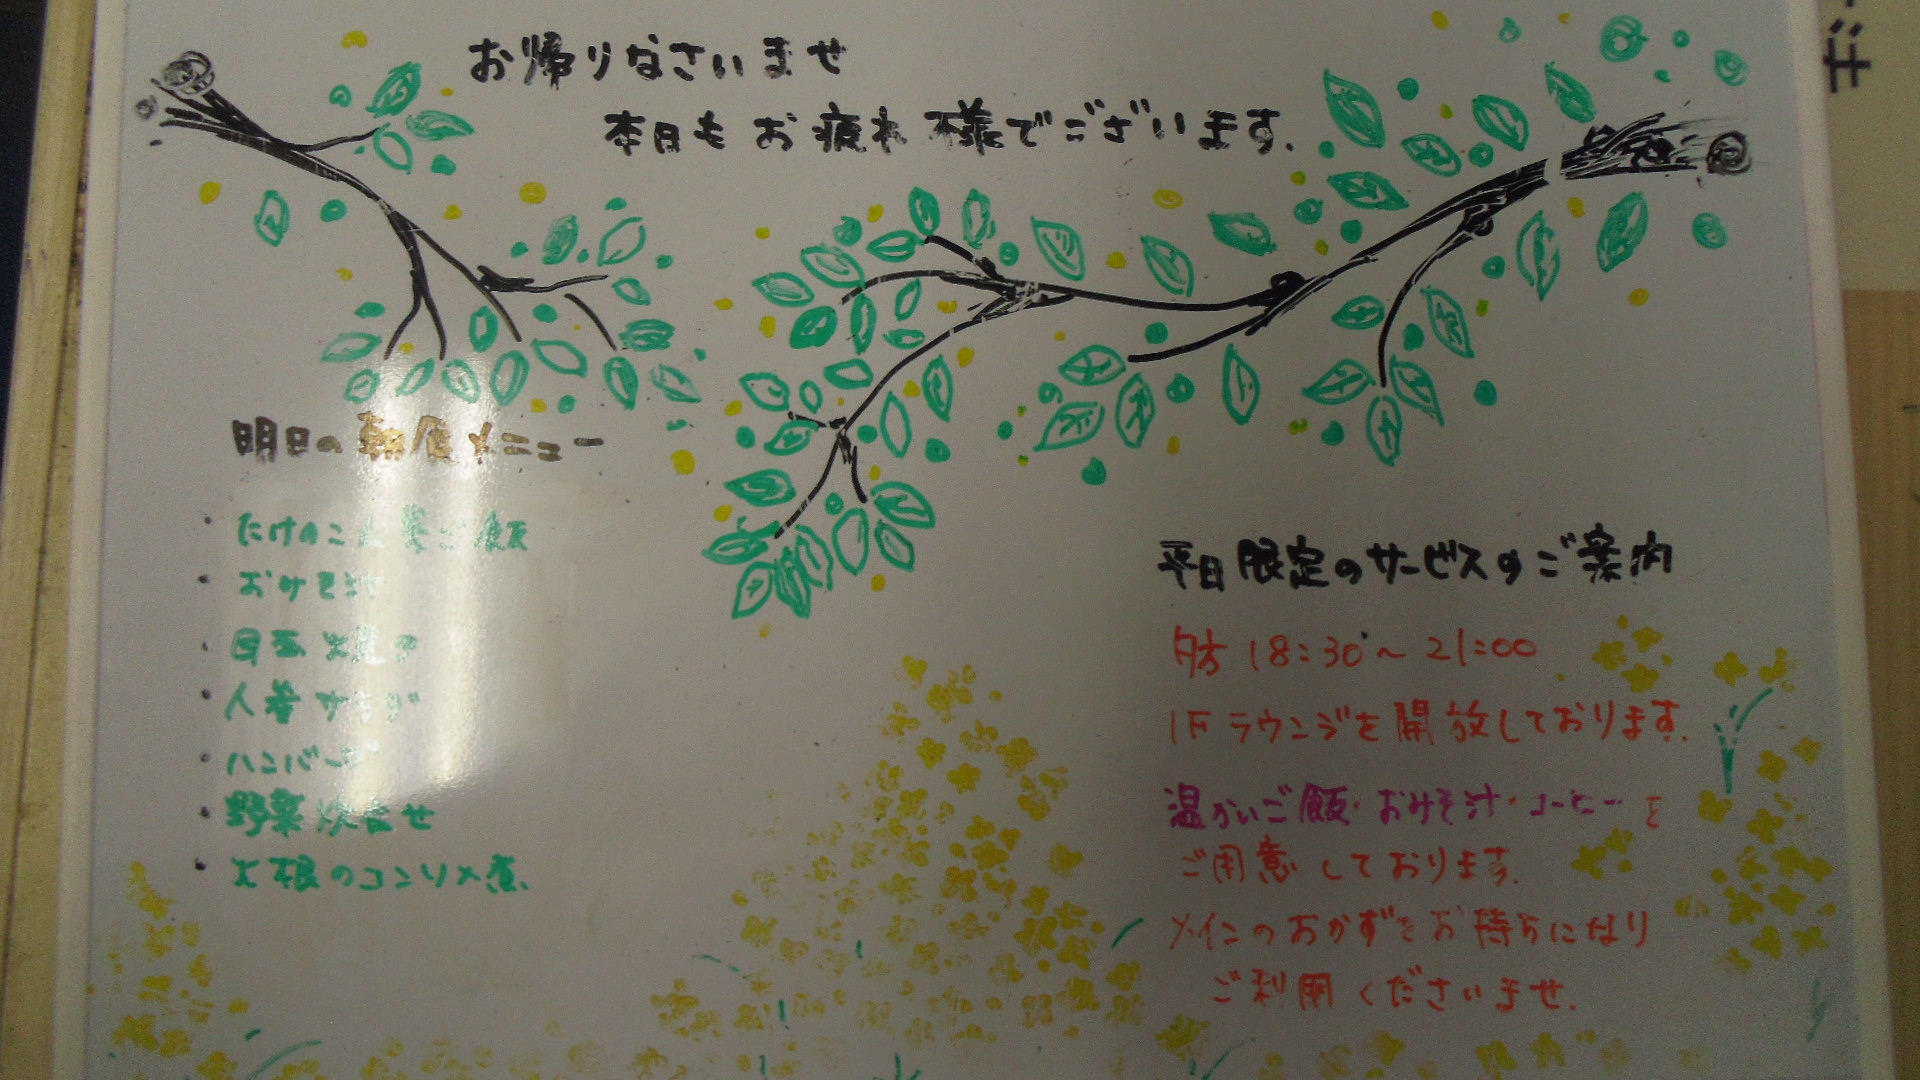 お帰りなさいませ
本日もお疲れ様でございます.
明日の朝食メニュー
・たけのこ ご飯
・おみそ汁
・目玉焼き
・人参サラダ
・ハンバーグ
・野菜炊合せ
・大根のコンソメ煮
平日限定のサービスのご案内
夕方 18:30～21:00
1Fラウンジを開放しております.
温かいご飯・おみそ汁・コーヒーを
ご用意しております.
メインのおかずをお持ちになり
ご利用くださいませ.